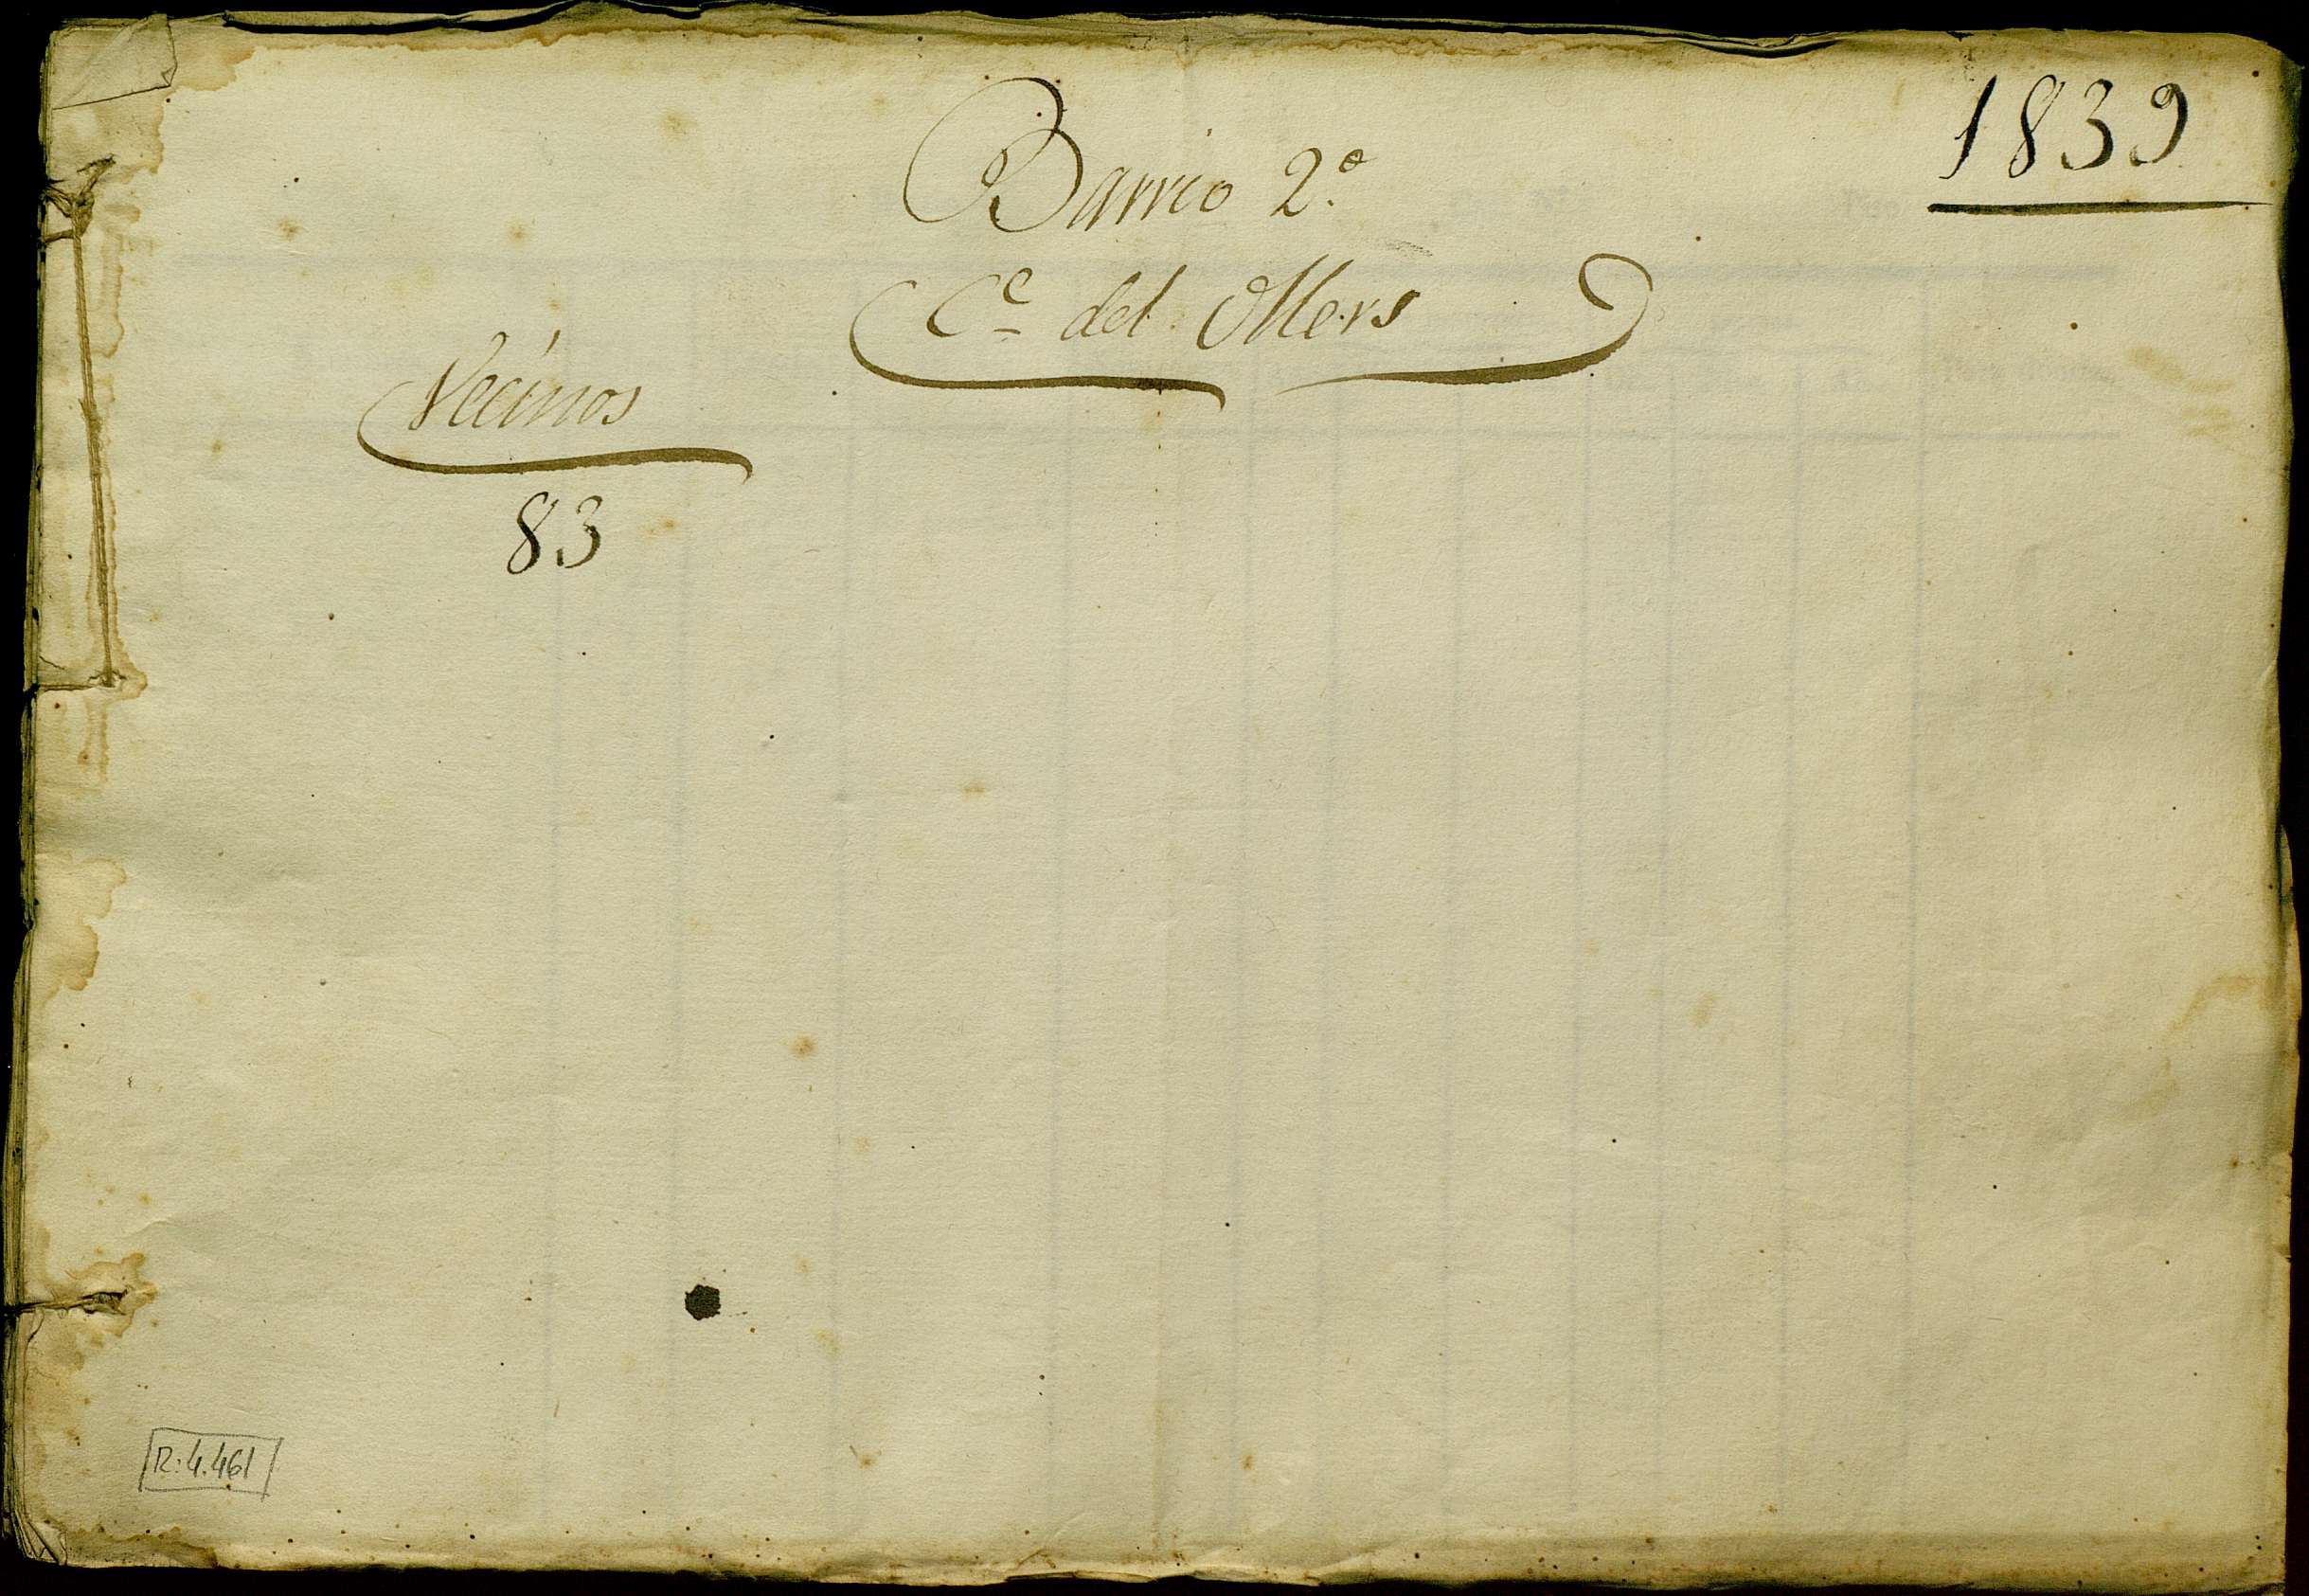 1839
Barrio 2.º
C.e del Mers
Vecinos
83
R:4.461